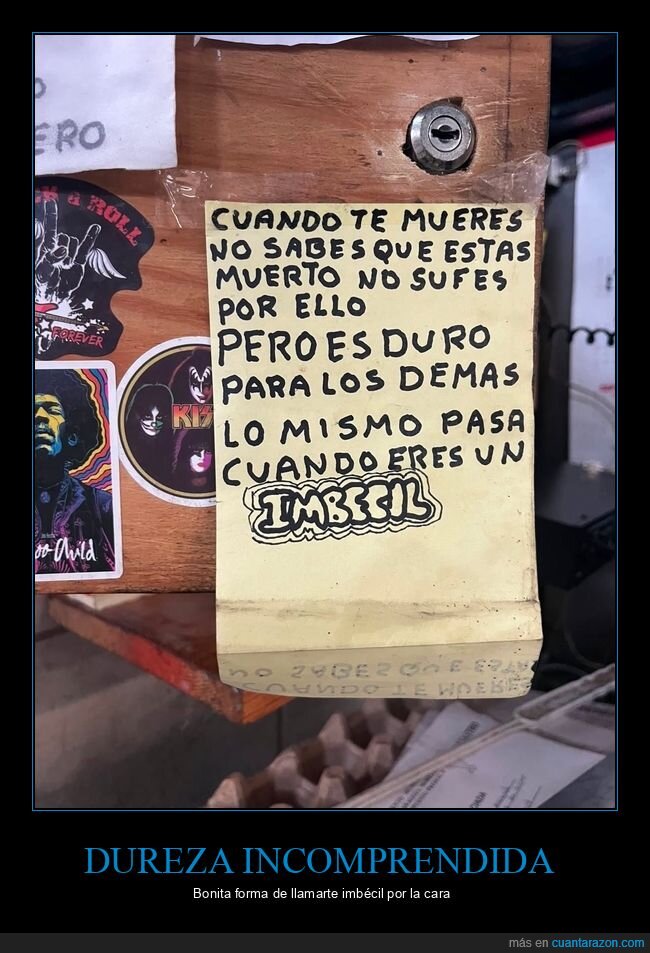 ERO
ROCK & ROLL
FOREVER
KISS
Child
CUANDO TE MUERES
NO SABES QUE ESTAS
MUERTO NO SUFES
POR ELLO
PERO ES DURO
PARA LOS DEMAS
LO MISMO PASA
CUANDO ERES UN
IMBECIL
DUREZA INCOMPRENDIDA
Bonita forma de llamarte imbécil por la cara
más en cuantarazon.com